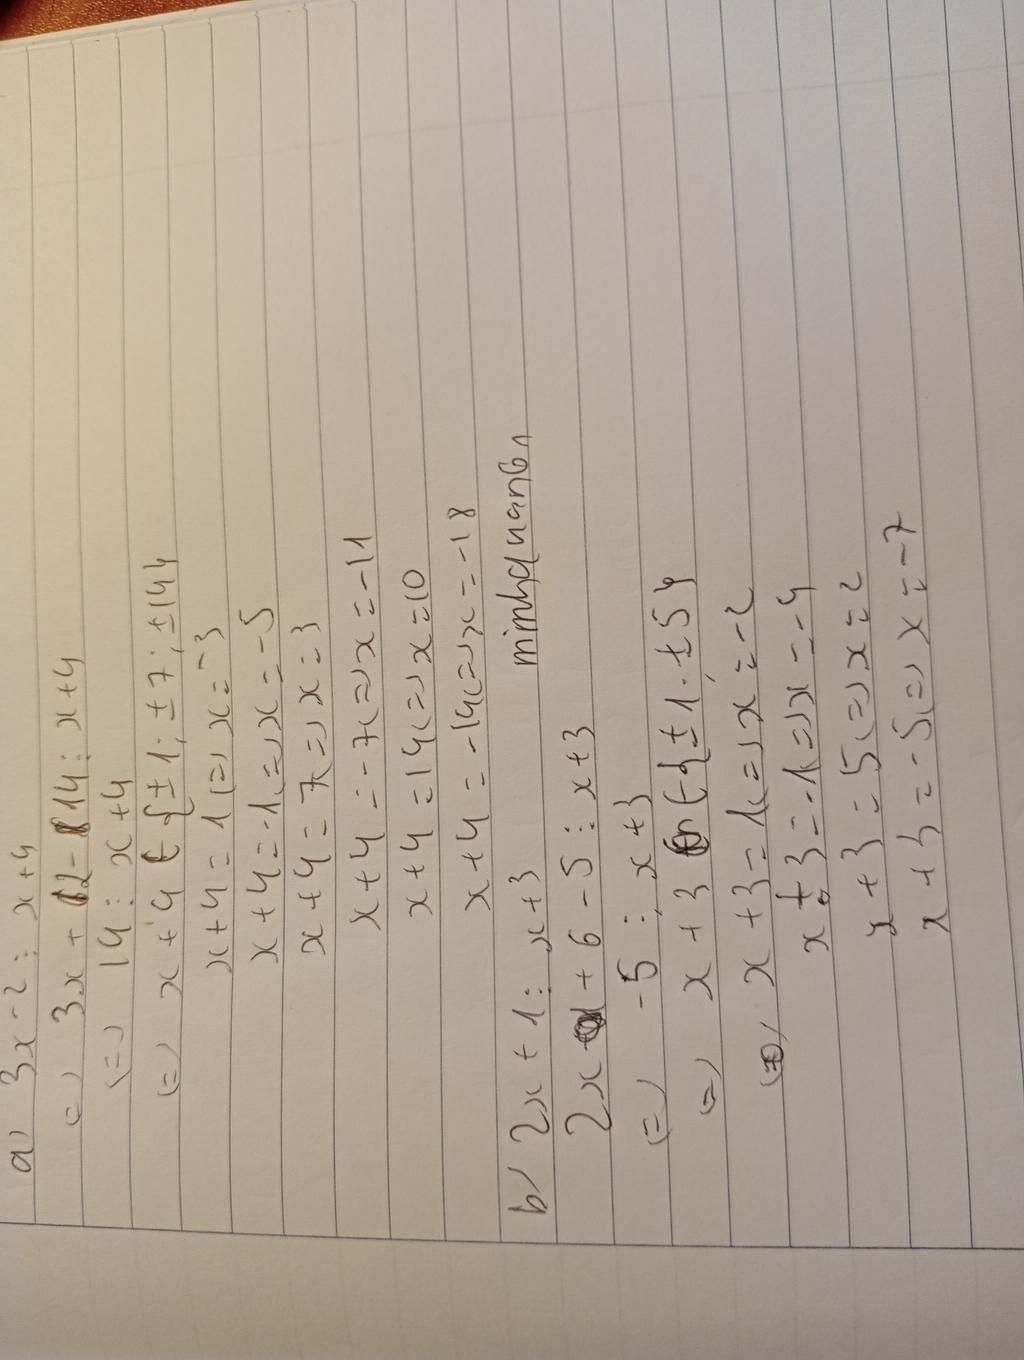 a) 3x - 2 ⋮ x + 4
(=) 3x + 12 - 14 ⋮ x + 4
(=) 14 ⋮ x + 4
(=) x + 4 ∈ {±1; ±7; ±14}
x + 4 = 1 (=) x = -3
x + 4 = -1 (=) x = -5
x + 4 = 7 (=) x = 3
x + 4 = -7 (=) x = -11
x + 4 = 14 (=) x = 10
x + 4 = -14 (=) x = -18
b) 2x + 1 ⋮ x + 3 minhquanbn
2x + 6 - 5 ⋮ x + 3
(=) -5 ⋮ x + 3
(=) x + 3 ∈ {±1; ±5}
(=) x + 3 = 1 (=) x = -2
x + 3 = -1 (=) x = -4
x + 3 = 5 (=) x = 2
x + 3 = -5 (=) x = -7